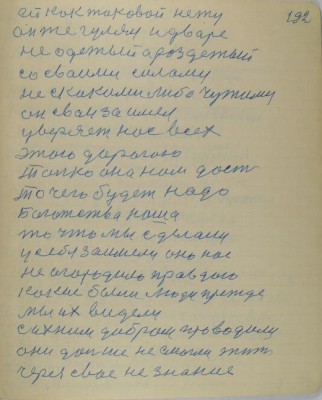 192
ей как таковой нету
он же гулял и дваре
не одетый а роздетый
со сваими силами
не скакими либо чужими
он сваи заимел
уверяет нас всех
этою дарогою
Толко она нам даст
То чего будет надо
Богатства наша
то что мы сделали
у себя заимели оно нас
не огородило правдою
какие были люди прежде
мы их видели
сихним добром проводили
они дальше не смогли жить
через свое не знание